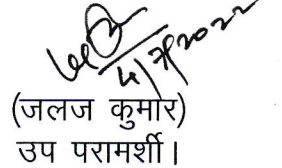 4/7/2022
(जलज कुमार)
उप परामर्शी।